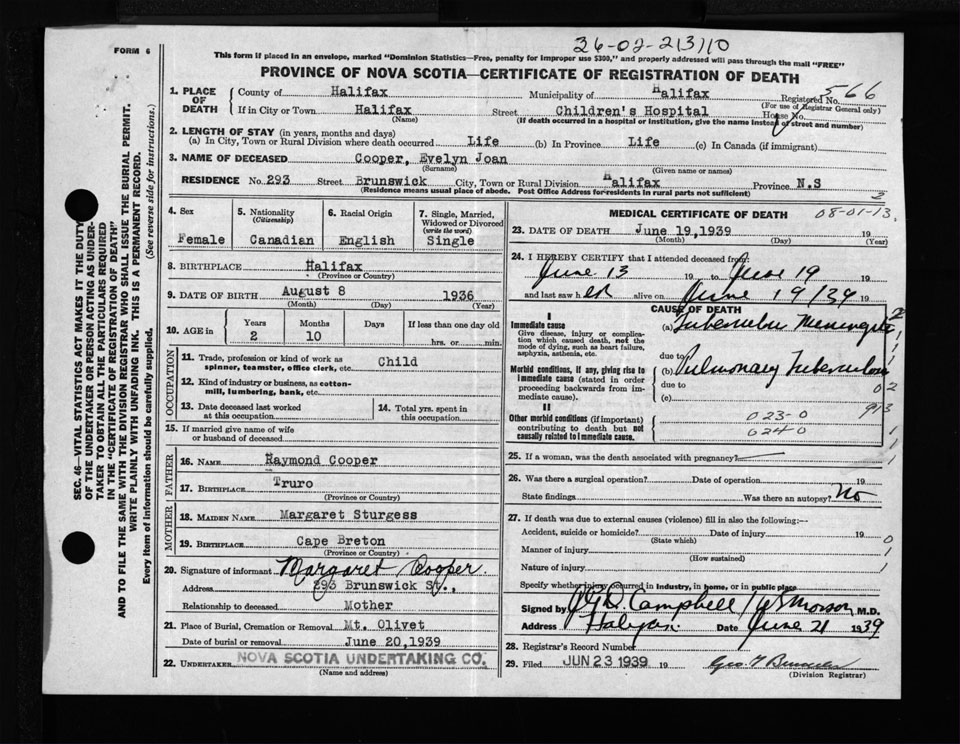 26-02-213110
FORM 6
This form if placed in an envelope, marked "Dominion Statistics—Free, penalty for improper use $300," and properly addressed will pass through the mail "FREE"
PROVINCE OF NOVA SCOTIA—CERTIFICATE OF REGISTRATION OF DEATH
SEC. 46—VITAL STATISTICS ACT MAKES IT THE DUTY
OF THE UNDERTAKER OR PERSON ACTING AS UNDER-
TAKER TO OBTAIN ALL THE PARTICULARS REQUIRED
IN THE "CERTIFICATE OF REGISTRATION OF DEATH"
AND TO FILE THE SAME WITH THE DIVISION REGISTRAR WHO SHALL ISSUE THE BURIAL PERMIT.
WRITE PLAINLY WITH UNFADING INK. THIS IS A PERMANENT RECORD.
Every item of information should be carefully supplied. (See reverse side for instructions.)
1. PLACE OF DEATH
County of Halifax Municipality of Halifax Registered No. 566
(For use of Registrar General only)
If in City or Town Halifax Street Children's Hospital House No.
(Name) (If death occurred in a hospital or institution, give the name instead of street and number)
2. LENGTH OF STAY (in years, months and days)
(a) In City, Town or Rural Division where death occurred Life (b) In Province Life (c) In Canada (if immigrant)
3. NAME OF DECEASED Cooper, Evelyn Joan
(Surname) (Given name or names)
RESIDENCE No. 293 Street Brunswick City, Town or Rural Division Halifax Province N.S
(Residence means usual place of abode. Post Office Address for residents in rural parts not sufficient)
2
4. Sex Female
5. Nationality (Citizenship) Canadian
6. Racial Origin English
7. Single, Married, Widowed or Divorced (write the word) Single
8. BIRTHPLACE Halifax
(Province or Country)
9. DATE OF BIRTH August 8 1936
(Month) (Day) (Year)
10. AGE in Years Months Days If less than one day old
2 10 hrs. or min.
OCCUPATION
11. Trade, profession or kind of work as spinner, teamster, office clerk, etc. Child
12. Kind of industry or business, as cotton-mill, lumbering, bank, etc.
13. Date deceased last worked at this occupation
14. Total yrs. spent in this occupation
15. If married give name of wife or husband of deceased
FATHER
16. NAME Raymond Cooper
17. BIRTHPLACE Truro
(Province or Country)
MOTHER
18. MAIDEN NAME Margaret Sturgess
19. BIRTHPLACE Cape Breton
(Province or Country)
20. Signature of informant Margaret Cooper.
Address 293 Brunswick St.,
Relationship to deceased Mother
21. Place of Burial, Cremation or Removal Mt. Olivet
Date of burial or removal June 20,1939
22. UNDERTAKER NOVA SCOTIA UNDERTAKING CO.
(Name and address)
MEDICAL CERTIFICATE OF DEATH
08-01-13.
23. DATE OF DEATH June 19,1939 19
(Month) (Day) (Year)
24. I HEREBY CERTIFY that I attended deceased from:
June 13 19 to June 19 19
and last saw h er alive on June 19/39 19
CAUSE OF DEATH
I
Immediate cause
Give disease, injury or complication which caused death, not the mode of dying, such as heart failure, asphyxia, asthenia, etc.
(a) Tubercular Meningitis
due to
Morbid conditions, if any, giving rise to immediate cause (stated in order proceeding backwards from immediate cause).
(b) Pulmonary Tuberculosis
due to
(c)
02
913
II
Other morbid conditions (if important) contributing to death but not causally related to immediate cause.
023-0
024-0
25. If a woman, was the death associated with pregnancy?
26. Was there a surgical operation? Date of operation 19
State findings Was there an autopsy? No
27. If death was due to external causes (violence) fill in also the following:—
Accident, suicide or homicide? Date of injury 19
(State which)
Manner of injury
(How sustained)
Nature of injury
Specify whether injury occurred in industry, in home, or in public place
Signed by Campbell / M.D.
Address Halifax Date June 21 1939
28. Registrar's Record Number
29. Filed JUN 23 1939 19 Geo.
(Division Registrar)